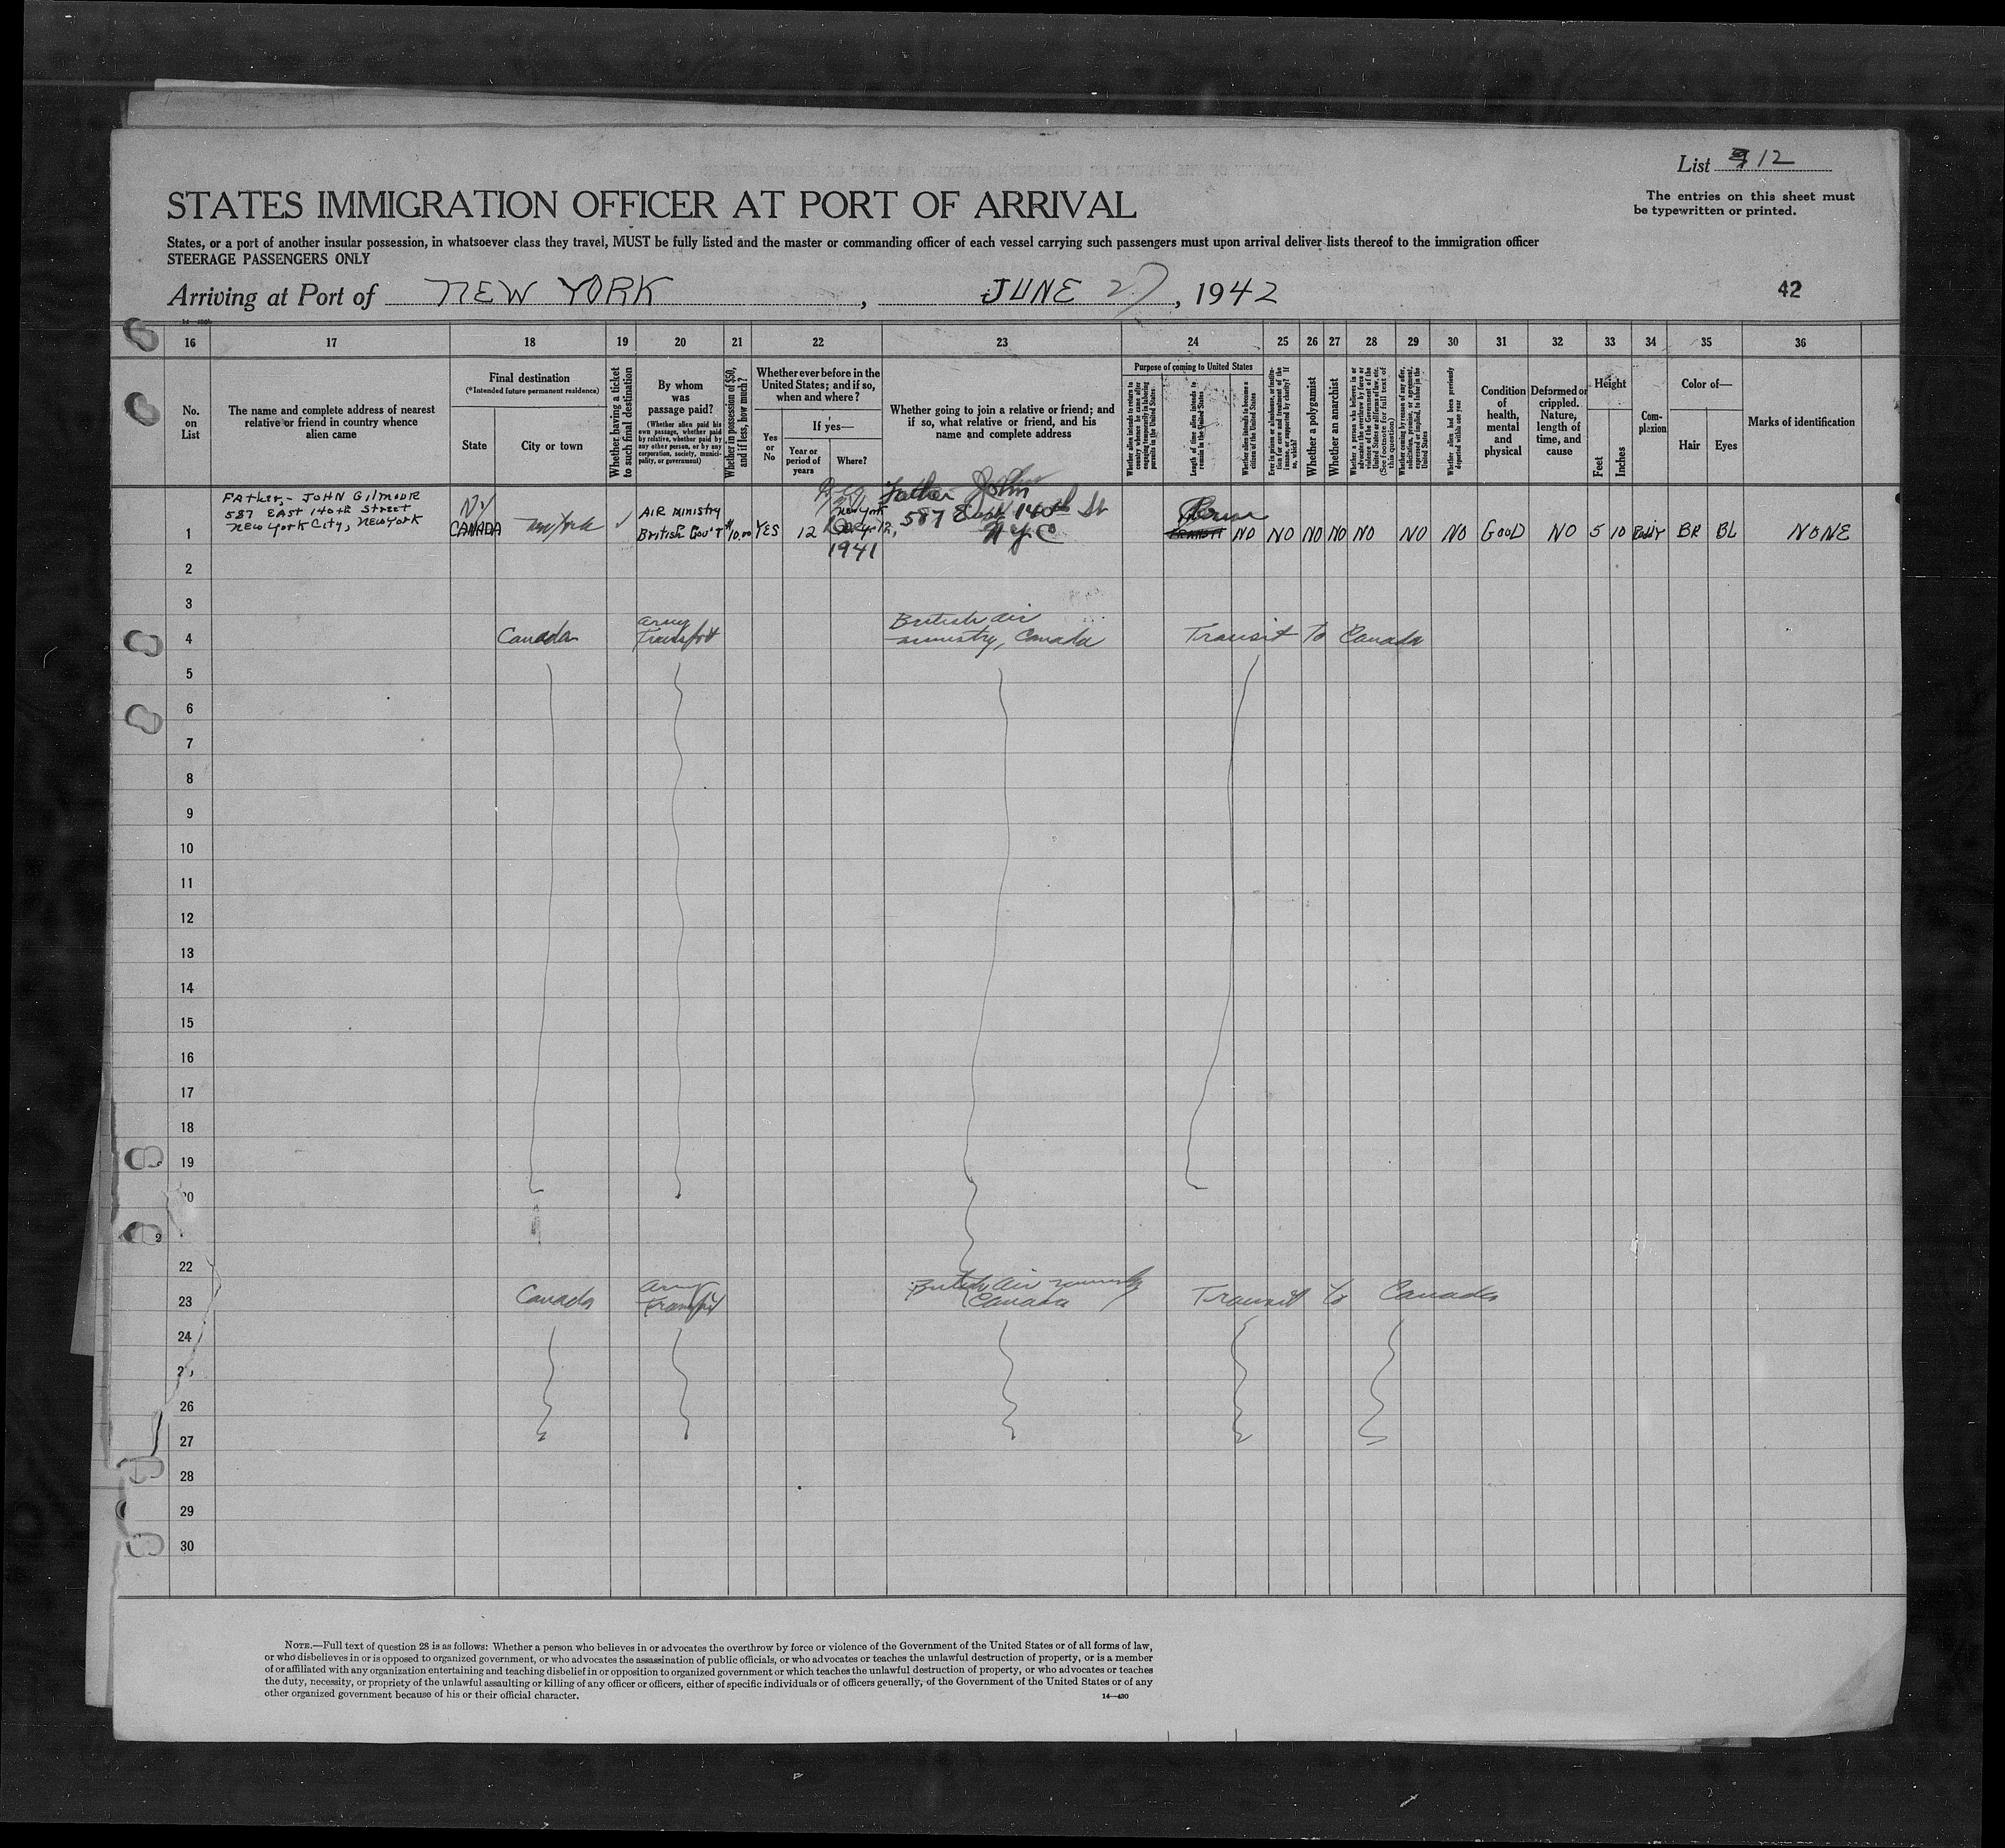 List 12
The entries on this sheet must
be typewritten or printed.
STATES IMMIGRATION OFFICER AT PORT OF ARRIVAL
States, or a port of another insular possession, in whatsoever class they travel, MUST be fully listed and the master or commanding officer of each vessel carrying such passengers must upon arrival deliver lists thereof to the immigration officer
STEERAGE PASSENGERS ONLY
Arriving at Port of NEW YORK, JUNE 27, 1942
42
16 17 18 19 20 21 22 23 24 25 26 27 28 29 30 31 32 33 34 35 36
No. on List
The name and complete address of nearest
relative or friend in country whence
alien came
Final destination
(*Intended future permanent residence)
State
City or town
Whether having a ticket
to such final destination
By whom
was
passage paid?
(Whether alien paid his
own passage, whether paid
by relative, whether paid by
any other person, or by any
corporation, society, munici-
pality, or government)
Whether in possession of $50,
and if less, how much?
Whether ever before in the
United States; and if so,
when and where?
Yes
or
No
If yes—
Year or
period of
years
Where?
Whether going to join a relative or friend; and
if so, what relative or friend, and his
name and complete address
Purpose of coming to United States
Whether alien intends to return to
country whence he came after
engaging temporarily in laboring
pursuits in the United States
Length of time alien intends to
remain in the United States
Whether alien intends to become a
citizen of the United States
Ever in prison or almshouse, or institu-
tion for care and treatment of the
insane, or supported by charity? If
so, which?
Whether a polygamist
Whether an anarchist
Whether a person who believes in or
advocates the overthrow by force or
violence of the Government of the
United States or all forms of law, etc.
(See footnote for full text of
this question)
Whether coming by reason of any offer,
solicitation, promise, or agreement,
expressed or implied, to labor in the
United States
Whether alien had been previously
deported within one year
Condition
of
health,
mental
and
physical
Deformed or
crippled.
Nature,
length of
time, and
cause
Height
Feet
Inches
Com-
plexion
Color of—
Hair
Eyes
Marks of identification
FATHER - JOHN GILMOUR
587 EAST 140th STREET
NEW YORK CITY, NEW YORK
1
NY
CANADA
New York
AIR MINISTRY
BRITISH GOV'T
10.00
YES
12
New York
1941
Father John
587 East 140th St
N.Y.C
NO NO NO NO NO NO NO GOOD NO 5 10 BR BL NONE
2
3
4 Canada Army Transport British Air ministry, Canada Transit to Canada
5
6
7
8
9
10
11
12
13
14
15
16
17
18
19
20
22
23 Canada Army Transport British Air ministry Canada Transit to Canada
24
26
27
28
29
30
NOTE.—Full text of question 28 is as follows: Whether a person who believes in or advocates the overthrow by force or violence of the Government of the United States or of all forms of law,
or who disbelieves in or is opposed to organized government, or who advocates the assassination of public officials, or who advocates or teaches the unlawful destruction of property, or is a member
of or affiliated with any organization entertaining and teaching disbelief in or opposition to organized government or which teaches the unlawful destruction of property, or who advocates or teaches
the duty, necessity, or propriety of the unlawful assaulting or killing of any officer or officers, either of specific individuals or of officers generally, of the Government of the United States or of any
other organized government because of his or their official character.
14—430